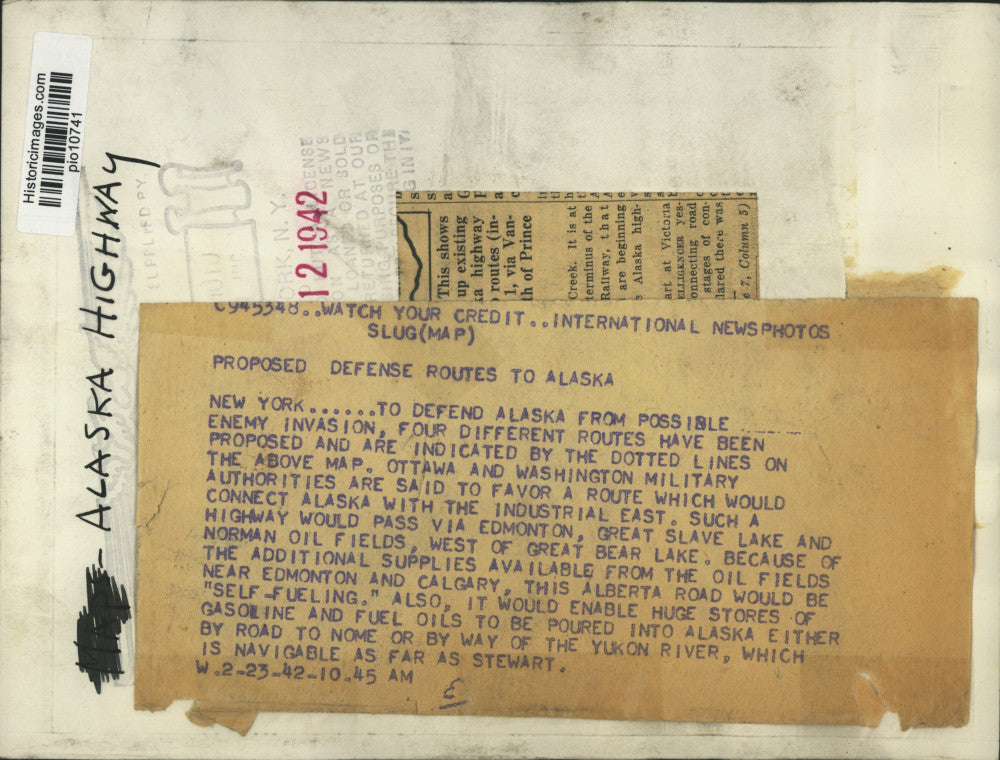 Historicimages.com
pio10741
- ALASKA HIGHWAY
12 1942
This shows
up existing
a highway
routes (in-
1, via Van-
th of Prince
Creek. It is at
terminus of the
Railway, that
are beginning
Alaska high-
art at Victoria
ELLIGENCER yes-
onnecting road
stages of con-
lared there was
e 7, Column 5)
C945348..WATCH YOUR CREDIT..INTERNATIONAL NEWSPHOTOS
SLUG(MAP)
PROPOSED DEFENSE ROUTES TO ALASKA
NEW YORK......TO DEFEND ALASKA FROM POSSIBLE
ENEMY INVASION, FOUR DIFFERENT ROUTES HAVE BEEN
PROPOSED AND ARE INDICATED BY THE DOTTED LINES ON
THE ABOVE MAP. OTTAWA AND WASHINGTON MILITARY
AUTHORITIES ARE SAID TO FAVOR A ROUTE WHICH WOULD
CONNECT ALASKA WITH THE INDUSTRIAL EAST. SUCH A
HIGHWAY WOULD PASS VIA EDMONTON, GREAT SLAVE LAKE AND
NORMAN OIL FIELDS, WEST OF GREAT BEAR LAKE. BECAUSE OF
THE ADDITIONAL SUPPLIES AVAILABLE FROM THE OIL FIELDS
NEAR EDMONTON AND CALGARY, THIS ALBERTA ROAD WOULD BE
"SELF-FUELING." ALSO, IT WOULD ENABLE HUGE STORES OF
GASOLINE AND FUEL OILS TO BE POURED INTO ALASKA EITHER
BY ROAD TO NOME OR BY WAY OF THE YUKON RIVER, WHICH
IS NAVIGABLE AS FAR AS STEWART.
W.2-23-42-10.45 AM